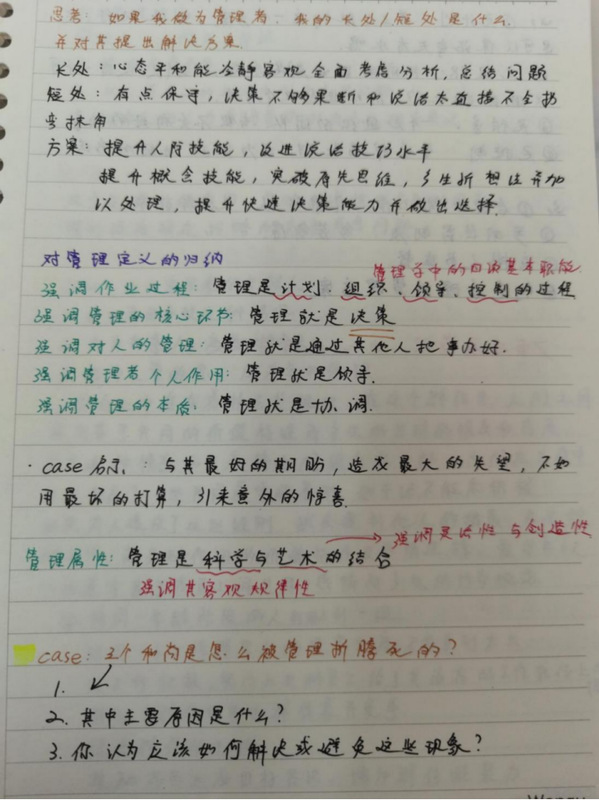 思考：如果我做为管理者，我的长处/短处是什么.
并对其提出解决方案.
长处：心态平和能冷静客观全面考虑分析，总结问题
短处：有点保守，决策不够果断和说话太直接不会拐
弯抹角
方案：提升人际技能，改进说话技巧水平
提升概念技能，突破原先思维，多生折想法并加
以处理，提升快速决策能力并做出选择.
对管理定义的归纳
管理学中的四项基本职能
强调作业过程：管理是计划、组织、领导、控制的过程
强调管理的核心环节：管理就是决策
强调对人的管理：管理就是通过其他人把事办好.
强调管理者个人作用：管理就是领导.
强调管理的本质：管理就是协调.
·case启示：与其最好的期盼，造成最大的失望，不如
用最坏的打算，引来意外的惊喜.
强调灵活性与创造性
管理属性：管理是科学与艺术的结合
强调其客观规律性
case：三个和尚是怎么被管理折腾死的？
1.
2.其中主要原因是什么？
3.你认为应该如何解决或避免这些现象？